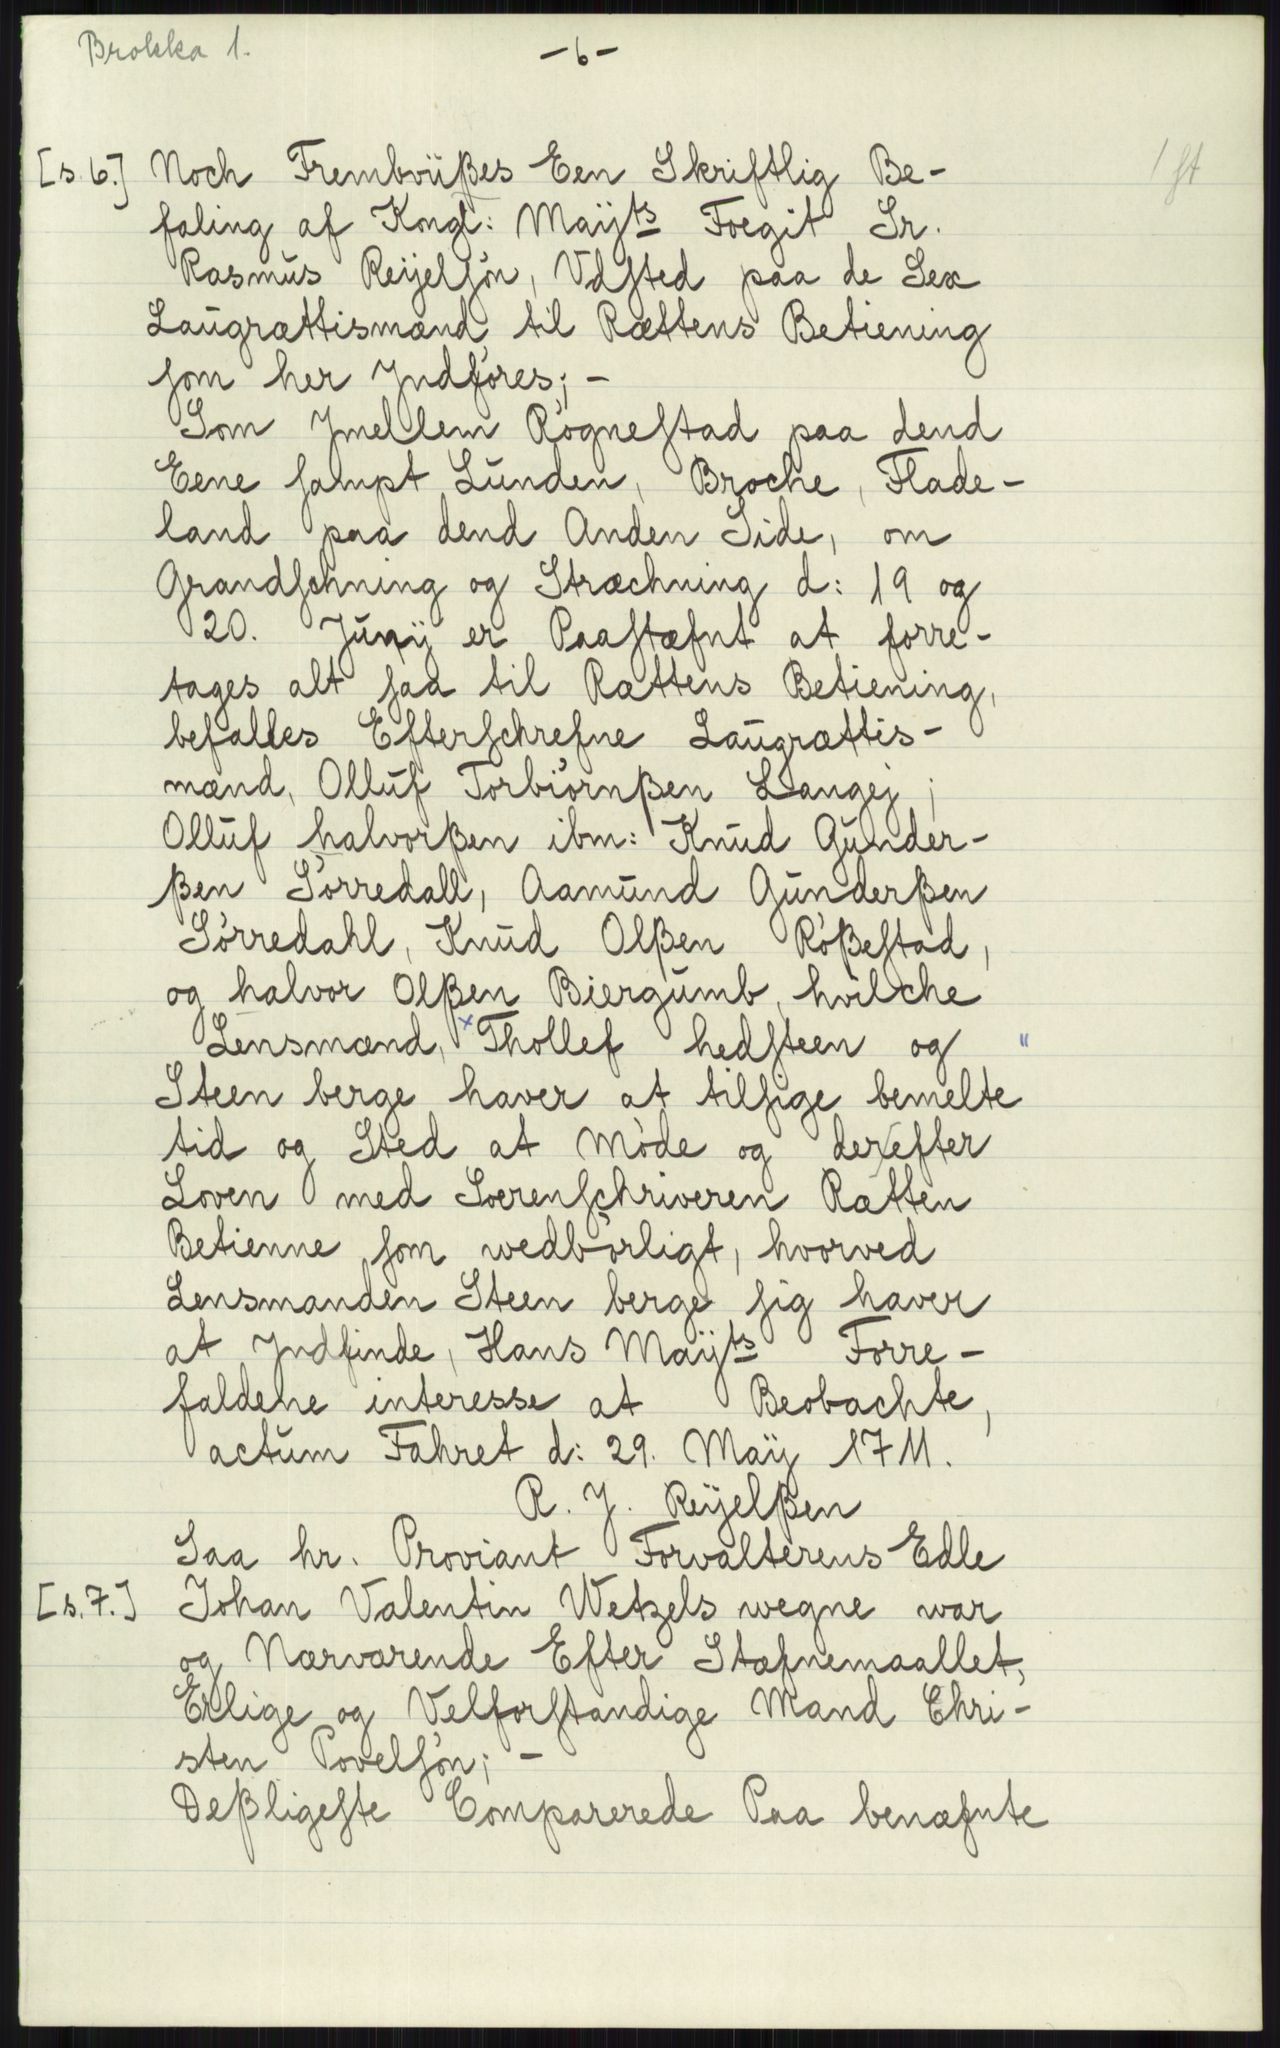 Brokka 1.
- 6 -
1 ft
[s. 6.] Noch Frembvüßes Een Skriftlig Be-
faling af Kongl: Maÿts Foegit Sr.
Rasmus Reÿelsøn, Vdsted paa de Sex
Laugrættismænd til Rættens Betiening
som her Jndføres; -
Som Jmellem Rögnestad paa dend
Eene sampt Lunden, Broche, Flade-
land paa dend Anden Side, om
Grandschning og Stræchning d: 19 og
20. Junÿ er Paastæfnt at forre-
tages alt saa til Rættens Betiening,
befalles Efterschrefne Laugrættis-
mænd, Olluf Torbiörnßen Langej;
Olluf halvorßen ibm: Knud Gunder-
ßen Sörredall, Aamund Gunderßen
Sörredahl, Knud Olßen Rößestad,
og halvor Olßen Biergumb, hvilche
Lensmænd, x Thollef hedsteen og "
Steen berge haver at tilsige bemelte
tid og Sted at Möde og derefter
Loven med Soerenschriveren Rætten
Betienne som wedbörligt, hvorved
Lensmanden Steen berge sig haver
at Jndfinde, Hans Maÿts Forre-
faldene interesse at Beobachte,
actum Fahret d: 29. Maÿ 1711.
R. J. Reÿelßen
Saa hr. Proviant Forvalterens Edle
[s. 7.] Johan Valentin Wetzels wegne war
og Nærværende Efter Stæfnemaallet,
Erlige og Velforstandige Mand Chri-
sten Povelsøn; -
Deßligeste Comparerede Paa benæfnte